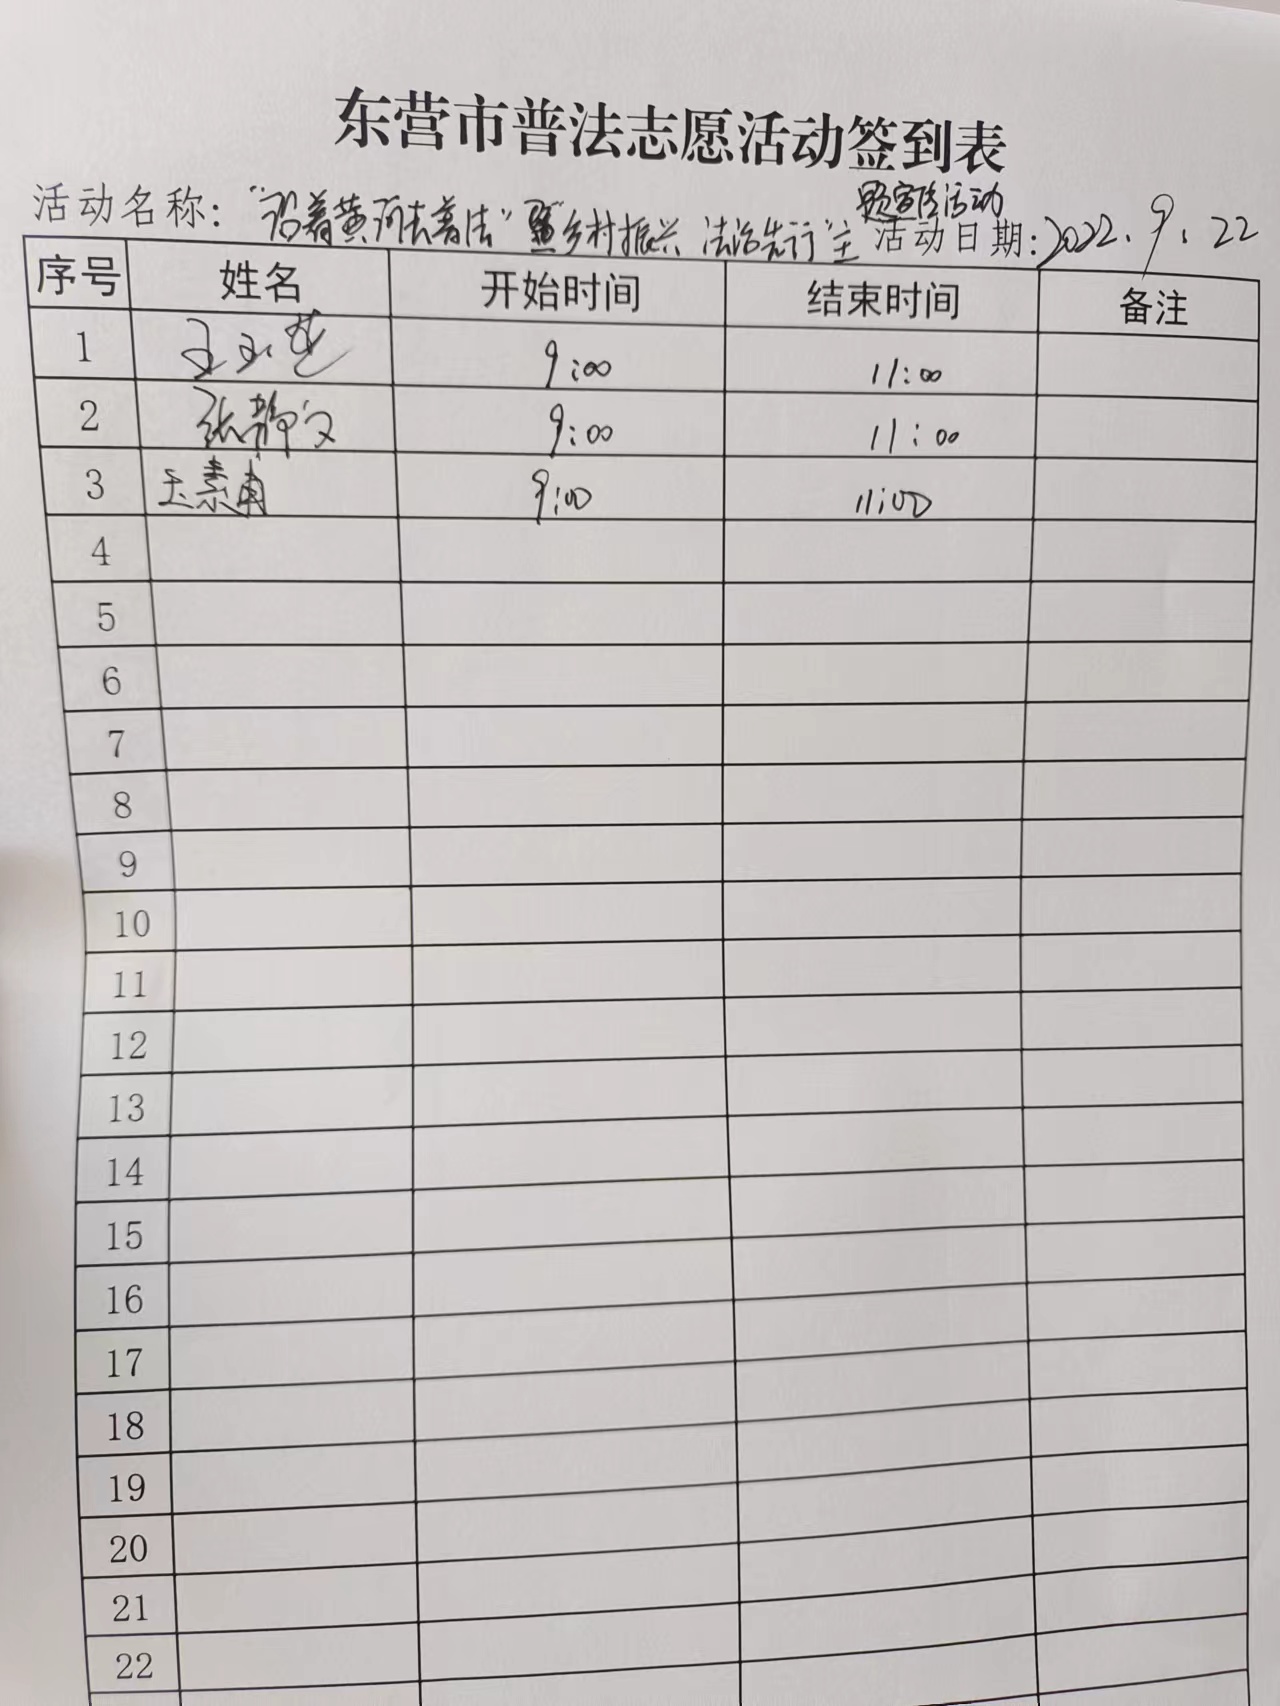 东营市普法志愿活动签到表
题宣传活动
活动名称："沿着黄河去普法"暨"乡村振兴 法治先行"主 活动日期：2022.9.22
序号 姓名 开始时间 结束时间 备注
1 王玉芝 9:00 11:00
2 张静文 9:00 11:00
3 王素 9:00 11:00
4
5
6
7
8
9
10
11
12
13
14
15
16
17
18
19
20
21
22